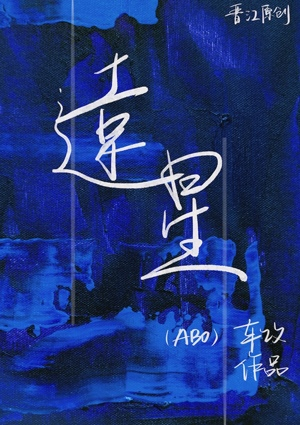 晋江原创
遠星
(ABO)
车改
作品